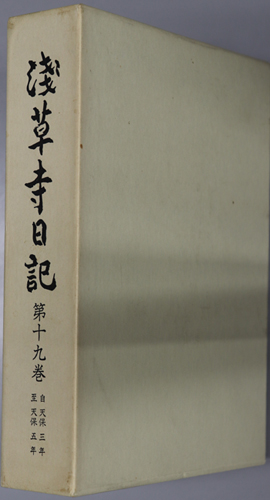 淺草寺日記
第十九巻
自天保三年
至天保五年